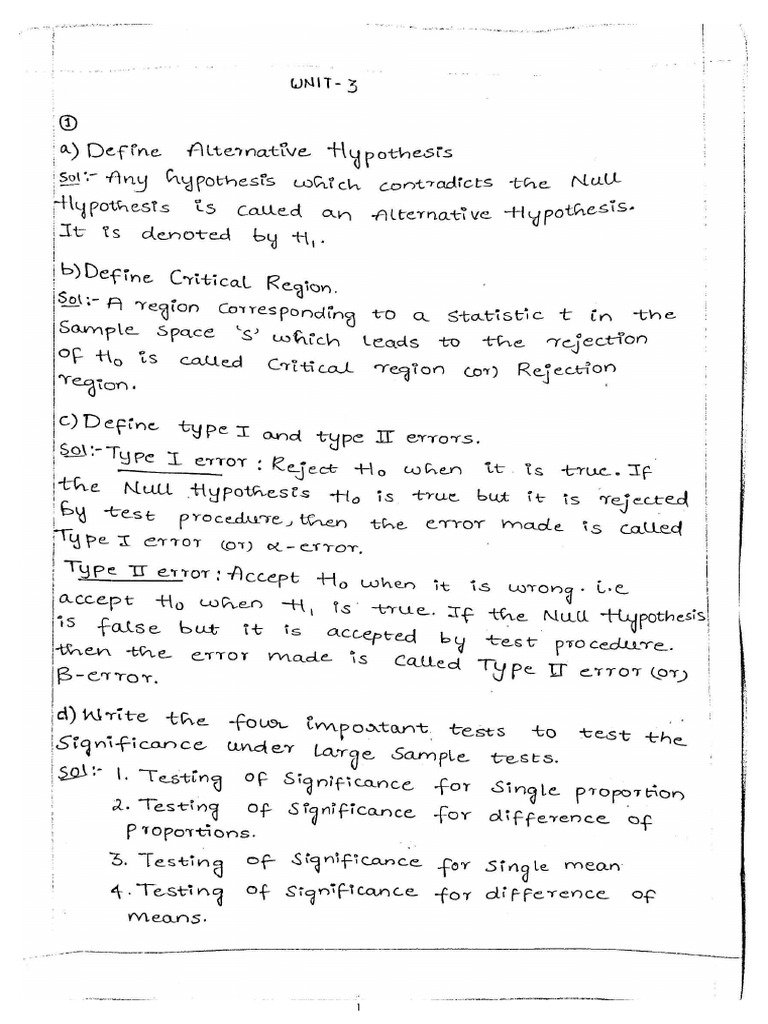 UNIT-3
①
a) Define Alternative Hypothesis
Sol:- Any hypothesis which contradicts the Null
Hypothesis is called an Alternative Hypothesis.
It is denoted by H₁.
b) Define Critical Region.
Sol:- A region corresponding to a statistic t in the
Sample space 's' which leads to the rejection
of H₀ is called Critical region (or) Rejection
region.
c) Define type I and type II errors.
Sol:- Type I error : Reject H₀ when it is true. If
the Null Hypothesis H₀ is true but it is rejected
by test procedure, then the error made is called
Type I error (or) α-error.
Type II error : Accept H₀ when it is wrong. i.e
accept H₀ when H₁ is true. If the Null Hypothesis
is false but it is accepted by test procedure.
then the error made is called Type II error (or)
β-error.
d) Write the four important tests to test the
Significance under large Sample tests.
Sol:- 1. Testing of Significance for Single proportion
2. Testing of Significance for difference of
Proportions.
3. Testing of Significance for Single mean
4. Testing of Significance for difference of
means.
1